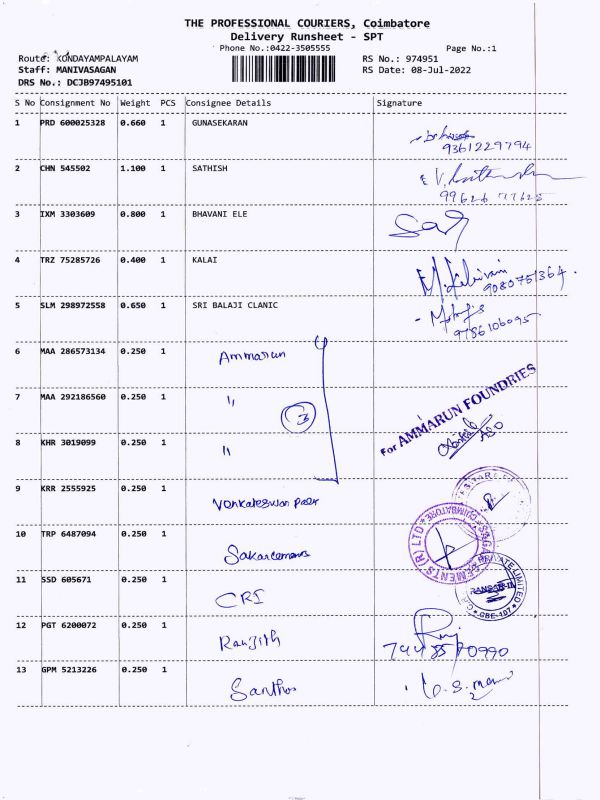 THE PROFESSIONAL COURIERS, Coimbatore
Delivery Runsheet - SPT
Phone No.:0422-3505555 Page No.:1
Route: KONDAYAMPALAYAM RS No.: 974951
Staff: MANIVASAGAN RS Date: 08-Jul-2022
DRS No.: DCJB97495101
S No Consignment No Weight PCS Consignee Details Signature
1 PRD 600025328 0.660 1 GUNASEKARAN
9361229794
2 CHN 545502 1.100 1 SATHISH
99626 77625
3 IXM 3303609 0.800 1 BHAVANI ELE
4 TRZ 75285726 0.400 1 KALAI
9080751364
5 SLM 298972558 0.650 1 SRI BALAJI CLANIC
9786106095
6 MAA 286573134 0.250 1 Ammarun
7 MAA 292186560 0.250 1 "
3
For AMMARUN FOUNDRIES
8 KHR 3019099 0.250 1 "
9 KRR 2555925 0.250 1
10 TRP 6487094 0.250 1
11 SSD 605671 0.250 1 CRI
12 PGT 6200072 0.250 1 Ranjith
13 GPM 5213226 0.250 1 Santhos